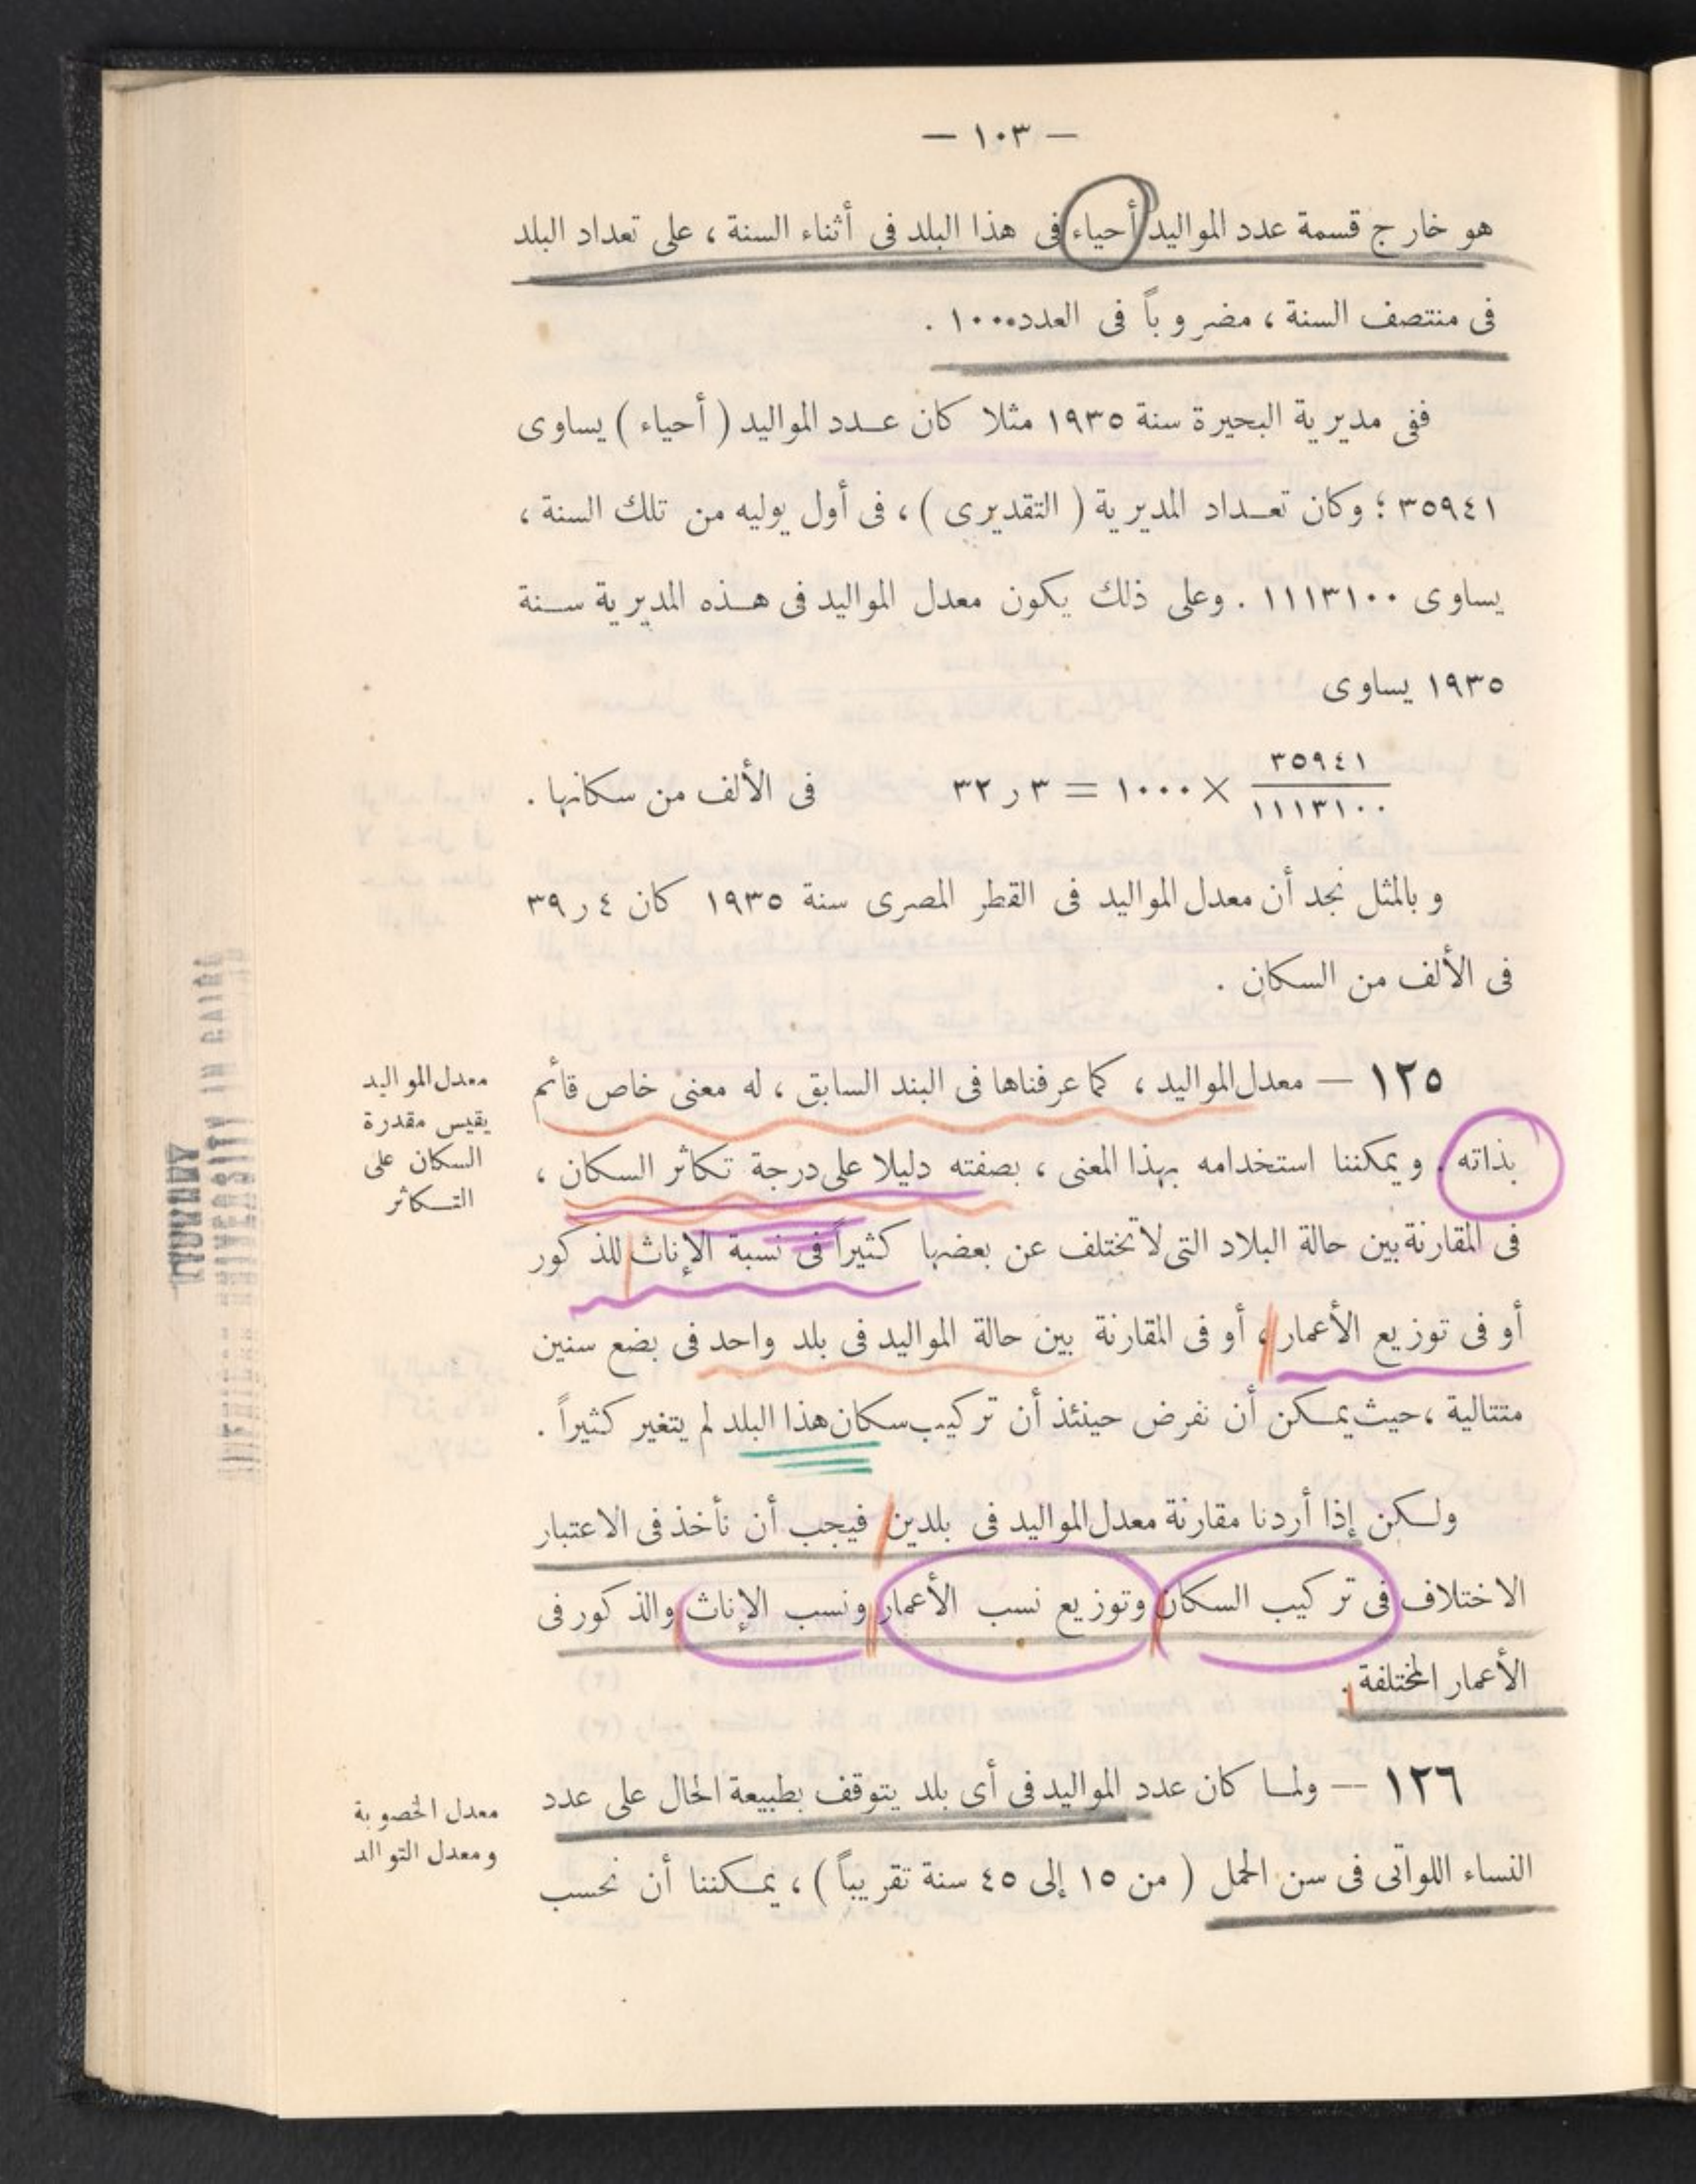 — ١٠٣ —
هو خارج قسمة عدد المواليد أحياء فى هذا البلد فى أثناء السنة ، على تعداد البلد
فى منتصف السنة ، مضروباً فى العدد ١٠٠٠ .
ففى مديرية البحيرة سنة ١٩٣٥ مثلا كان عدد المواليد ( أحياء ) يساوى
٣٥٩٤١ ؛ وكان تعداد المديرية ( التقديرى ) ، فى أول يوليه من تلك السنة ،
يساوى ١١١٣١٠٠ . وعلى ذلك يكون معدل المواليد فى هذه المديرية سنة
١٩٣٥ يساوى
٣٥٩٤١
١١١٣١٠٠
× ١٠٠٠ = ٣ر٣٢ فى الألف من سكانها .
وبالمثل نجد أن معدل المواليد فى القطر المصرى سنة ١٩٣٥ كان ٤ر٣٩
فى الألف من السكان .
١٢٥ — معدل المواليد ، كما عرفناها فى البند السابق ، له معنى خاص قائم
بذاته . ويمكننا استخدامه بهذا المعنى ، بصفته دليلا على درجة تكاثر السكان ،
فى المقارنة بين حالة البلاد التى لا تختلف عن بعضها كثيراً فى نسبة الإناث للذكور
أو فى توزيع الأعمار ، أو فى المقارنة بين حالة المواليد فى بلد واحد فى بضع سنين
متتالية ، حيث يمكن أن نفرض حينئذ أن تركيب سكان هذا البلد لم يتغير كثيراً .
معدل المواليد
يقيس مقدرة
السكان على
التكاثر
ولكن إذا أردنا مقارنة معدل المواليد فى بلدين فيجب أن نأخذ فى الاعتبار
الاختلاف فى تركيب السكان وتوزيع نسب الأعمار ونسب الإناث والذكور فى
الأعمار المختلفة .
١٢٦ — ولما كان عدد المواليد فى أى بلد يتوقف بطبيعة الحال على عدد
النساء اللواتى فى سن الحمل ( من ١٥ إلى ٤٥ سنة تقريباً ) ، يمكننا أن نحسب
معدل الخصوبة
ومعدل التوالد